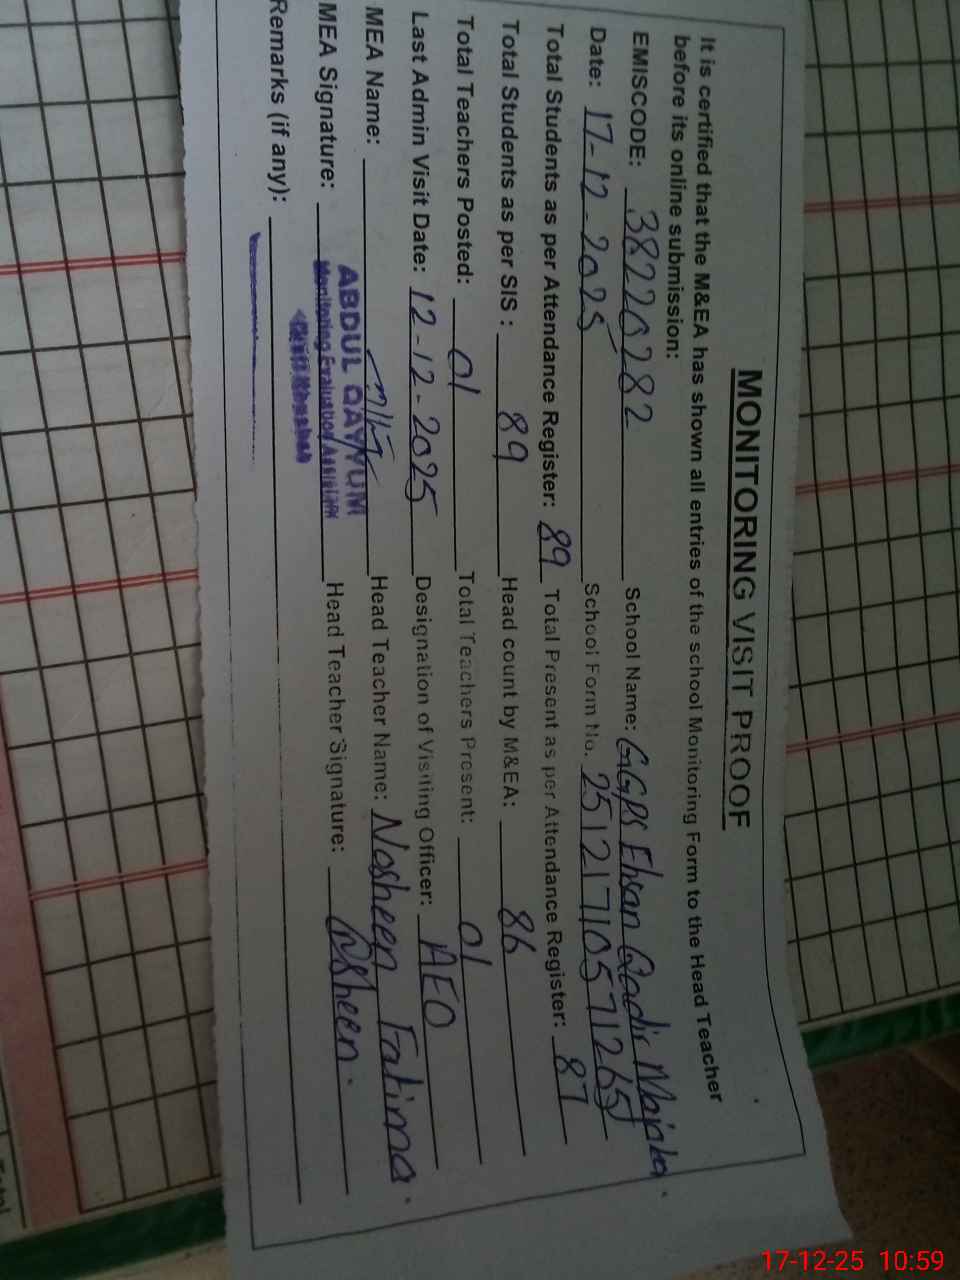 MONITORING VISIT PROOF
It is certified that the M&EA has shown all entries of the school Monitoring Form to the Head Teacher
before its online submission:
EMISCODE: 38220282 School Name: GGPS Ehsan Qadir
Date: 17-12-2025 School Form No. 25121710571265
Total Students as per Attendance Register: 89 Total Present as per Attendance Register: 87
Total Students as per SIS: 89 Head count by M&EA: 86
Total Teachers Posted: 01 Total Teachers Present: 01
Last Admin Visit Date: 12-12-2025 Designation of Visiting Officer: AEO
MEA Name: Head Teacher Name: Nosheen Fatima.
ABDUL QAYYUM
MEA Signature: Head Teacher Signature: Nsheen.
Monitoring Evaluation Assistant
Remarks (if any):
Total
17-12-25 10:59